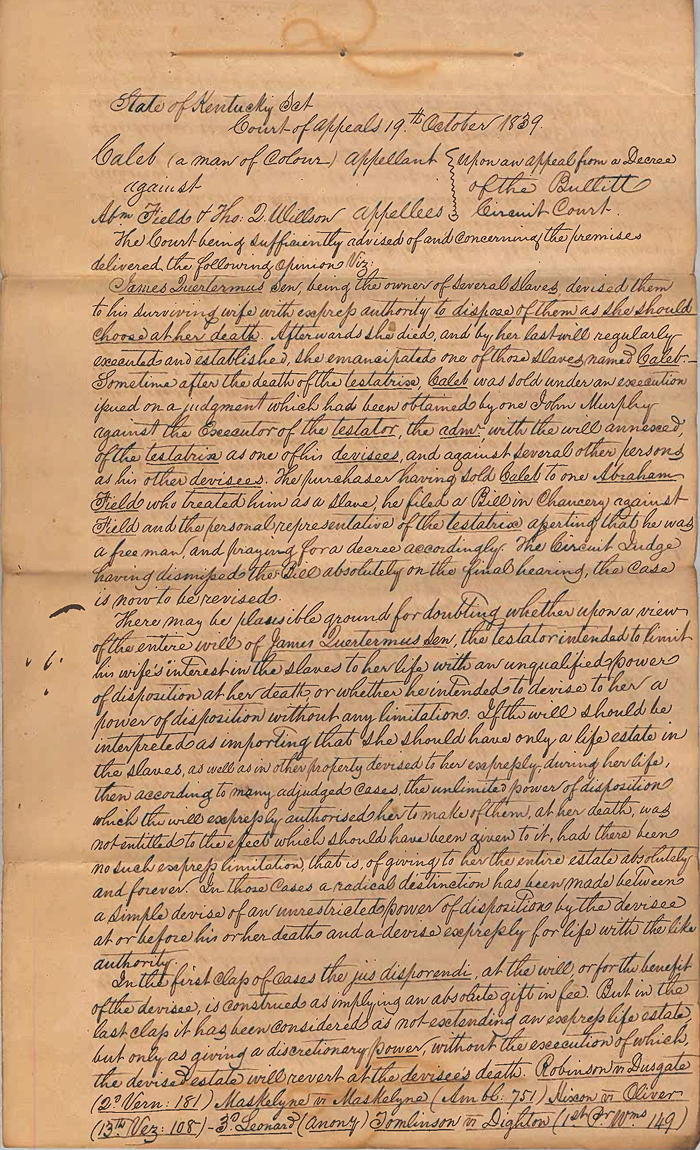 State of Kentucky Sct
Court of Appeals 19th October 1839.
Caleb (a man of Colour) appellant
against
Abm Field & Tho: Q. Willson appellees
upon an appeal from a Decree
of the Bullitt
Circuit Court.
The Court being sufficiently advised of and concerning the premises
delivered the following Opinion Viz:
James Quertermus Sen, being the owner of several slaves, devised them
to his surviving wife with express authority to dispose of them as she should
choose at her death. Afterwards she died, and by her last will regularly
executed and established, she emancipated one of those slaves named Caleb.
Sometime after the death of the testatrix, Caleb was sold under an execution
issued on a judgment which had been obtained by one John Murphy
against the Executor of the testator, the admr. with the will annexed,
of the testatrix as one of his devisees, and against several other persons
as his other devisees. The purchaser having sold Caleb to one Abraham
Field who treated him as a slave, he filed a Bill in Chancery against
Field and the personal representative of the testatrix asserting that he was
a free man, and praying for a decree accordingly. The Circuit Judge
having dismissed the Bill absolutely on the final hearing, the case
is now to be revised.
There may be plausible ground for doubting whether upon a view
of the entire will of James Quertermus Sen, the testator intended to limit
his wife's interest in the slaves to her life with an unqualified power
of disposition at her death, or whether he intended to devise to her a
power of disposition without any limitation. If the will should be
interpreted as importing that she should have only a life estate in
the slaves, as well as in other property devised to her expressly, during her life,
then according to many adjudged cases, the unlimited power of disposition
which the will expressly authorised her to make of them, at her death, was
not entitled to the effect which should have been given to it, had there been
no such express limitation, that is, of giving to her the entire estate absolutely
and forever. In those cases a radical distinction has been made between
a simple devise of an unrestricted power of disposition by the devisee
at or before his or her death and a devise expressly for life with the like
authority.
In the first class of cases the jus disporendi, at the will, or for the benefit
of the devisee, is construed as implying an absolute gift in fee. But in the
last class it has been considered as not extending an express life estate,
but only as giving a discretionary power, without the execution of which,
the devised estate will revert at the devisee's death. Robinson vs Dusgate
(2d Vern: 181) Maskelyne vs Maskelyne (Ambl: 751) Nixon vs Oliver
(13th Vez: 108) - 3d Leonard (Anony) Tomlinson vs Dighton (1st Pr Wms 149)